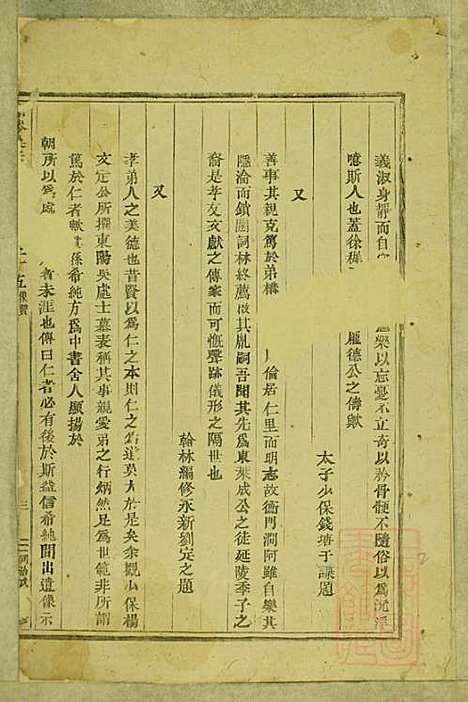 義淑身靜而自 樂以忘憂不立奇以矜骨骾不隨俗以爲沉浮
噫斯人也蓋徐穉 龐德公之儔歟
太子少保錢塘于謙題
又
善事其親克篤於弟 倫居仁里而明志故衡門澗阿雖自樂其
隱淪而鎖闥詞林終薦 其胤嗣吾聞其先爲東萊成公之徒延陵季子之
裔是孝友文獻之傳家而可慨聲跡儀形之隔世也
翰林編修永新劉定之題
又
孝弟人之美德也昔賢以爲仁之本則仁之 莫大於是矣余觀少保楊
文定公所撰東陽吳處士墓表稱其事親愛弟之行炳然足爲世範非所謂
篤於仁者歟 孫希純方爲中書舍人顯揚於
朝所以爲處 者未涯也傳曰仁者必有後於斯益信希純間出遺像示